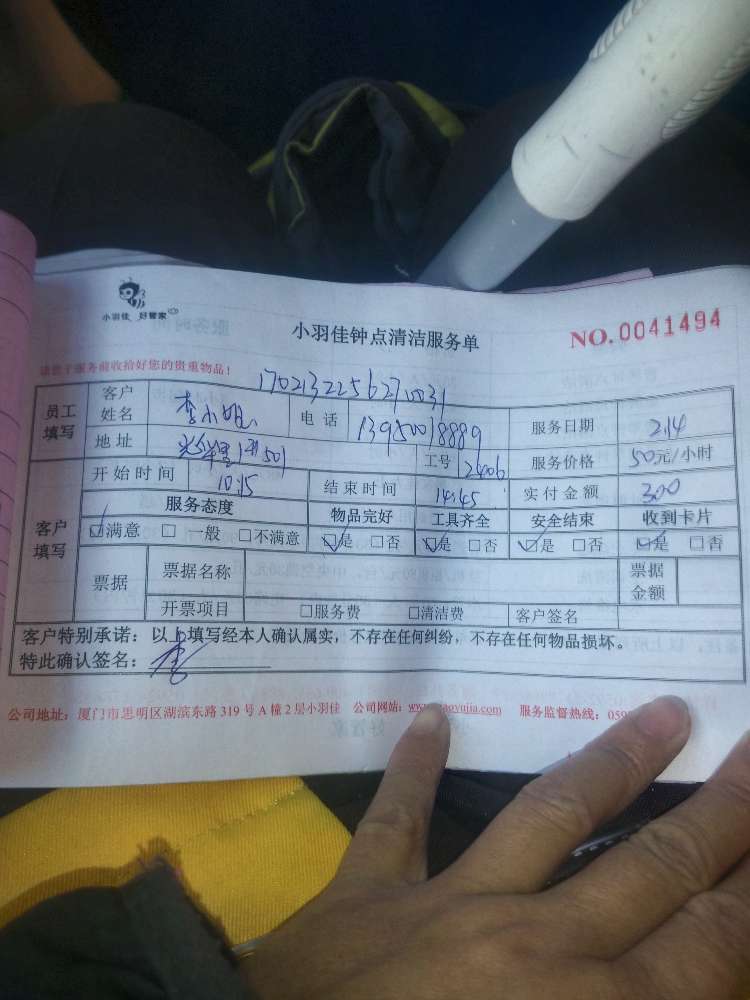 小羽佳 好管家
小羽佳钟点清洁服务单
NO.0041494
请您于服务前收拾好您的贵重物品！
1702132256270031
员工填写 客户姓名 李小姐 电话 13950018889 服务日期 2.14
地址 1#501 工号 2406 服务价格 50元/小时
客户填写 开始时间 10:15 结束时间 14:45 实付金额 300
服务态度 物品完好 工具齐全 安全结束 收到卡片
☑满意 □一般 □不满意 ☑是 □否 ☑是 □否 ☑是 □否 ☑是 □否
票据 票据名称 票据金额
开票项目 □服务费 □清洁费 客户签名
客户特别承诺：以上填写经本人确认属实，不存在任何纠纷，不存在任何物品损坏。
特此确认签名：李
公司地址：厦门市思明区湖滨东路319号A幢2层小羽佳 公司网站：www.xiaoyujia.com 服务监督热线：059